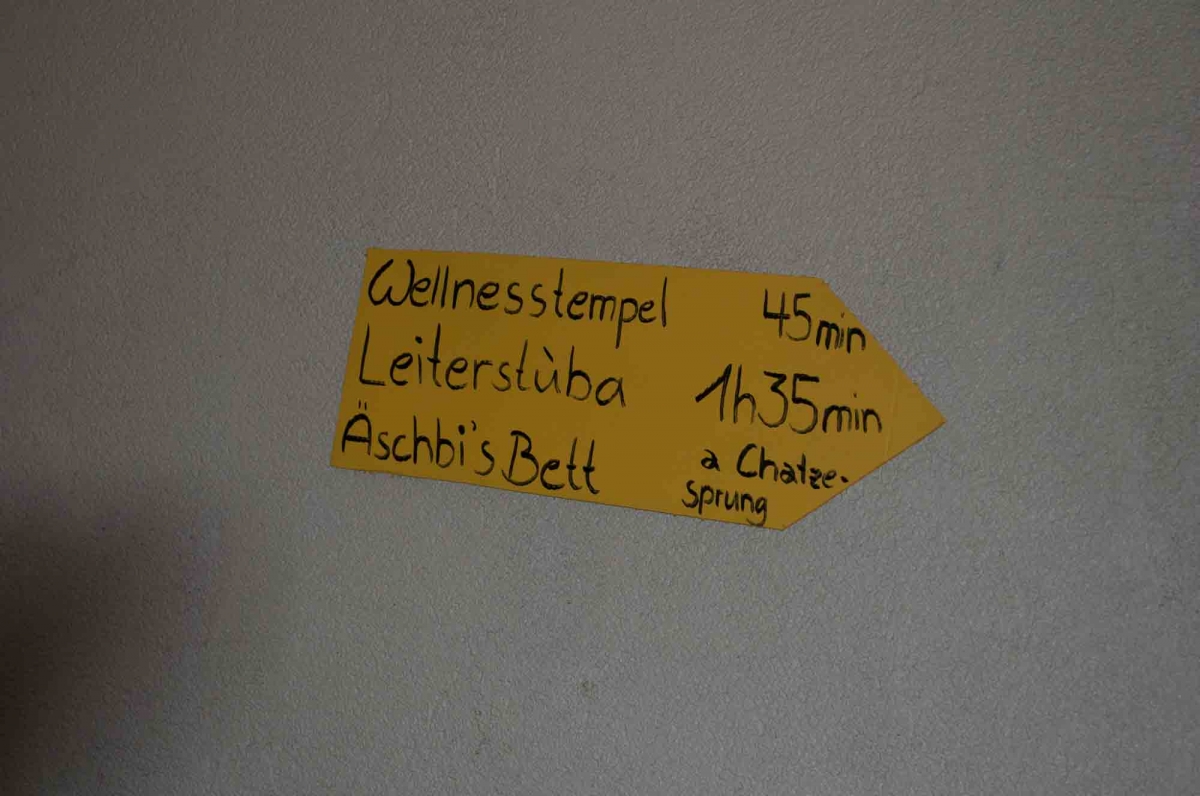 Wellnesstempel 45min
Leiterstùba 1h35min
Äschbi's Bett a Chatze-
sprung